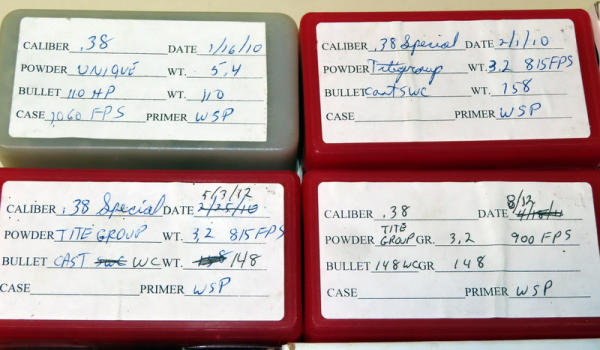 CALIBER .38 DATE 1/16/10
POWDER UNIQUE WT. 5.4
BULLET 110 HP WT. 110
CASE 1060 FPS PRIMER WSP
CALIBER .38 Special DATE 2/1/10
POWDER Titegroup WT. 3.2 815 FPS
BULLET Cast SWC WT. 158
CASE PRIMER WSP
5/3/12
CALIBER .38 Special DATE 2/25/10
POWDER TITEGROUP WT. 3.2 815 FPS
BULLET CAST SWC WC WT. 158 148
CASE PRIMER WSP
8/12
CALIBER .38 DATE
TITE
POWDER GROUP GR. 3.2 900 FPS
BULLET 148 WC GR 148
CASE PRIMER WSP